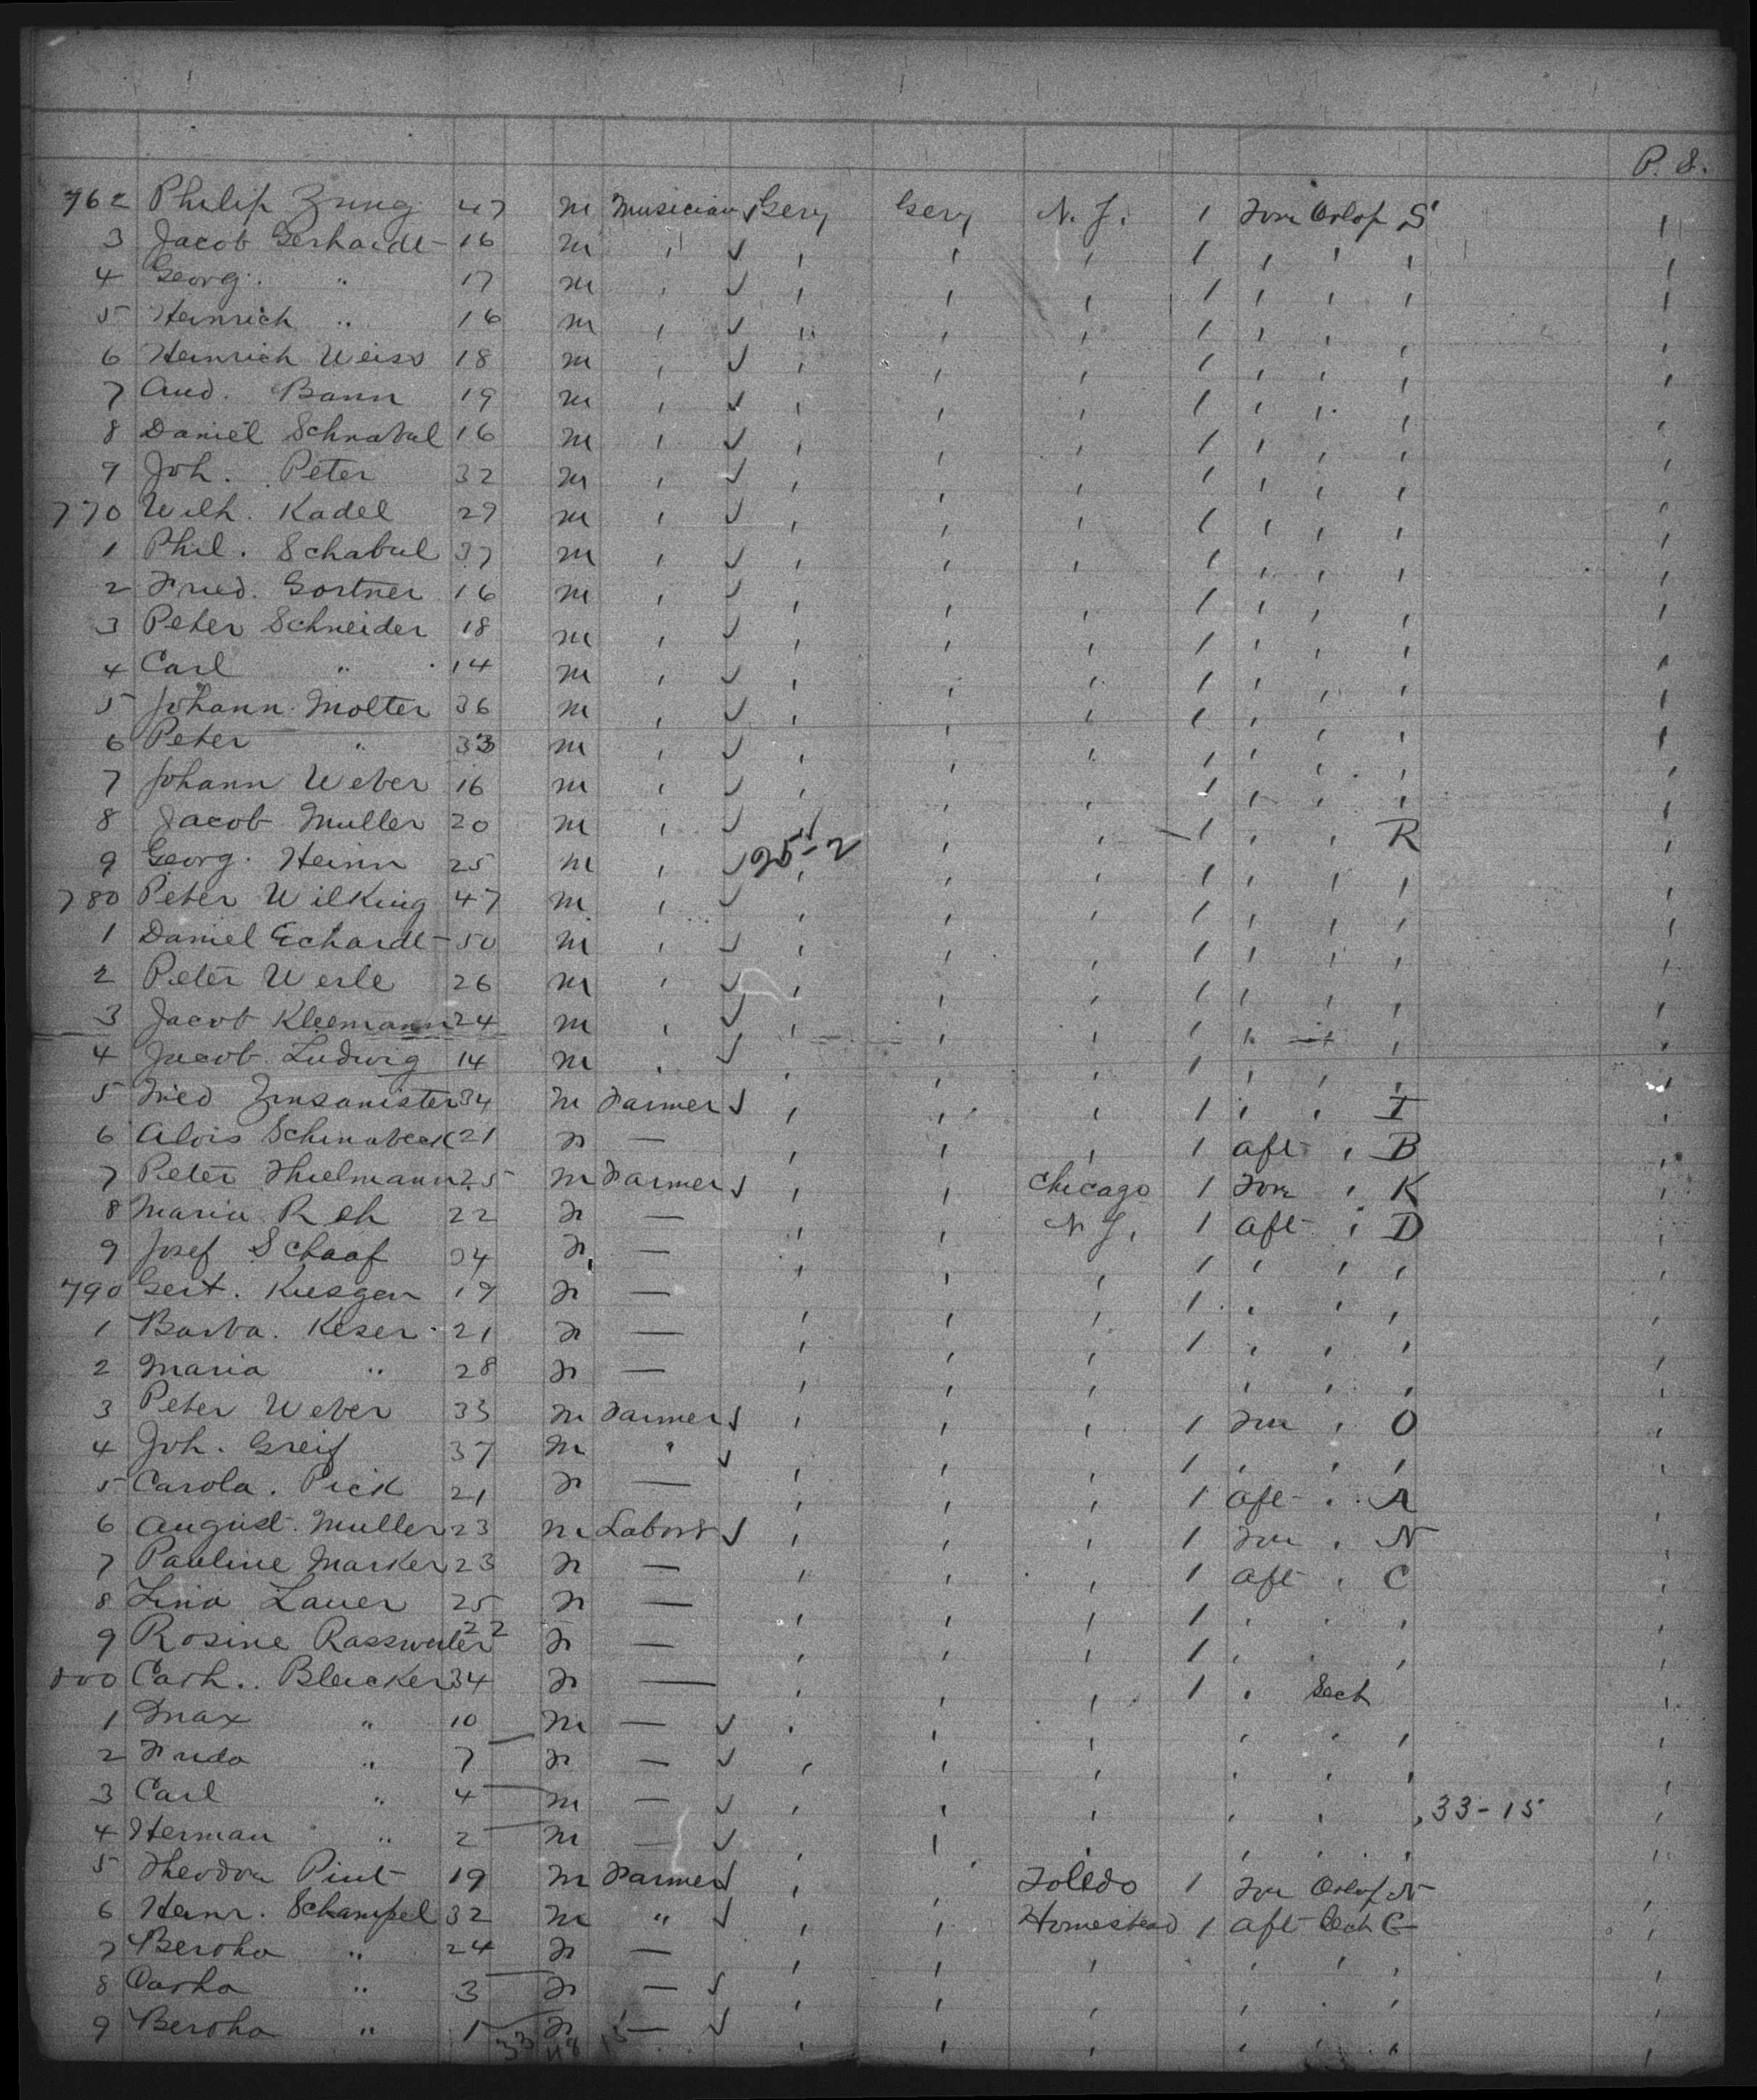 P. S.
762 Philip Zung 47 m Musician √ Gery Gery N. J. 1 For Orlop S ,
3 Jacob Gerhardt 16 m , √ , , , 1 , , , ,
4 Georg. " 17 m , √ , , , 1 , , , ,
5 Heinrich " 16 m , √ " , , 1 , , , ,
6 Heinrich Weiss 18 m , √ , , , 1 , , , ,
7 And. Bann 19 m , √ , , , 1 , , , ,
8 Daniel Schnabul 16 m , √ , , , 1 , , , ,
9 Joh. Peter 32 m , √ , , , 1 , , , ,
770 Wilh. Kadel 29 m , √ , , , 1 , , , ,
1 Phil. Schabul 37 m , √ , , , 1 , , , ,
2 Fried. Gortner 16 m , √ , , , 1 , , , ,
3 Peter Schneider 18 m , √ , , , 1 , , , ,
4 Carl " 14 m , √ , , , 1 , , , ,
5 Johann Molter 36 m , √ , , , 1 , , , ,
6 Peter " 33 m , √ , , , 1 , , , ,
7 Johann Weber 16 m , √ , , , 1 , , , ,
8 Jacob Muller 20 m , √ , , 1 , , R ,
9 Georg. Heinn 25 m , √ 25-2 , , , 1 , , , ,
780 Peter Wilking 47 m , √ , , , 1 , , , ,
1 Daniel Echardt 50 m , √ , , , 1 , , , ,
2 Peter Werle 26 m , √ , , , 1 , , , ,
3 Jacob Kleemann 24 m , √ , , , 1 , , , ,
4 Jacob Ludwig 14 m , √ , , , 1 , , , ,
5 Fried Zinsmister 34 m Farmer √ , , , 1 , , I ,
6 Alois Schinabeck 21 F — , , , 1 aft , B ,
7 Peter Thielmann 25 m Farmer √ , , Chicago 1 For , K ,
8 Maria Reh 22 F — , , N. J. 1 aft , D ,
9 Josef Schaaf 34 F — , , , 1 , , , ,
790 Gert. Kiesgen 19 F — , , , 1 , , , ,
1 Barba. Keser 21 F — , , , 1 , , , ,
2 Maria " 28 F — , , , , , , ,
3 Peter Weber 33 m Farmer √ , , , 1 For , O ,
4 Joh. Greif 37 m " √ , , , 1 , , , ,
5 Carola. Pick 21 F — , , , 1 aft , A ,
6 August Muller 23 m Labors √ , , , 1 For , N ,
7 Pauline Marker 23 F — , , , 1 aft , C ,
8 Lina Lauer 25 F — , , , 1 , , , ,
9 Rosine Rassweiler 22 F — , , , 1 , , , ,
800 Cath.. Bleicker 34 F — , , , 1 , Sech ,
1 Max " 10 m — √ , , , , , , ,
2 Frida " 7 F — √ , , , , , , ,
3 Carl " 4 m — √ , , , , , , 33-15 ,
4 Herman " 2 m — √ , , , , , , ,
5 Theodor Pint 19 m Farmer √ , , Toledo 1 For Orlop N ,
6 Heinr. Schampel 32 m " √ , , Homestead 1 aft Sech G ,
7 Bertha " 24 F — , , , , , , ,
8 Cartha " 3 F — √ , , , , , , ,
9 Bertha " 1 F — √ , , , , , , ,
33 48 15